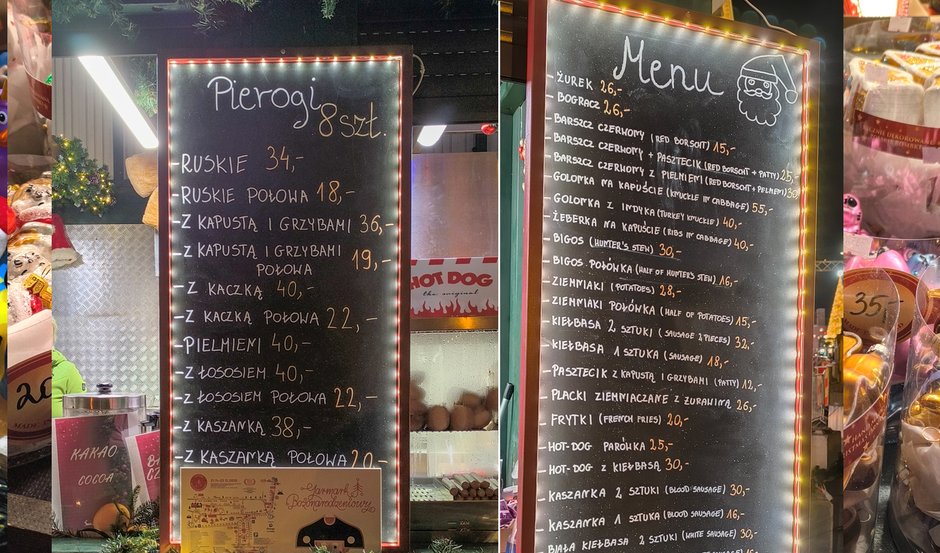 Pierogi
8 szt.
-RUSKIE 34,-
-RUSKIE POŁOWA 18,-
-Z KAPUSTĄ I GRZYBAMI 36,-
-Z KAPUSTĄ I GRZYBAMI
POŁOWA 19,-
-Z KACZKĄ 40,-
-Z KACZKĄ POŁOWA 22,-
-PIELMIENI 40,-
-Z ŁOSOSIEM 40,-
-Z ŁOSOSIEM POŁOWA 22,-
-Z KASZANKĄ 38,-
-Z KASZANKĄ POŁOWA 20,-
Jarmark
Bożonarodzeniowy
KAKAO
COCOA
HOT DOG
the original
Menu
-ŻUREK 26,-
-BOGRACZ 26,-
-BARSZCZ CZERWONY (RED BORSCHT) 15,-
-BARSZCZ CZERWONY + PASZTECIK (RED BORSCHT + PATTY) 25,-
-BARSZCZ CZERWONY Z PIELMIENI (RED BORSCHT + PELMENI) 30,-
-GOLONKA NA KAPUŚCIE (KNUCKLE IN CABBAGE) 55,-
-GOLONKA Z INDYKA (TURKEY KNUCKLE) 40,-
-ŻEBERKA NA KAPUŚCIE (RIBS IN CABBAGE) 40,-
-BIGOS (HUNTER'S STEW) 30,-
-BIGOS POŁÓWKA (HALF OF HUNTER'S STEW) 16,-
-ZIEMNIAKI (POTATOES) 28,-
-ZIEMNIAKI POŁÓWKA (HALF OF POTATOES) 15,-
-KIEŁBASA 2 SZTUKI (SAUSAGE 2 PIECES) 32,-
-KIEŁBASA 1 SZTUKA (SAUSAGE) 18,-
-PASZTECIK Z KAPUSTĄ I GRZYBAMI (PATTY) 12,-
-PLACKI ZIEMNIACZANE Z ŻURAWINĄ 26,-
-FRYTKI (FRENCH FRIES) 20,-
-HOT-DOG PARÓWKA 25,-
-HOT-DOG Z KIEŁBASĄ 30,-
-KASZANKA 2 SZTUKI (BLOOD SAUSAGE) 30,-
-KASZANKA 1 SZTUKA (BLOOD SAUSAGE) 16,-
-BIAŁA KIEŁBASA 2 SZTUKI (WHITE SAUSAGE) 30,-
35,-